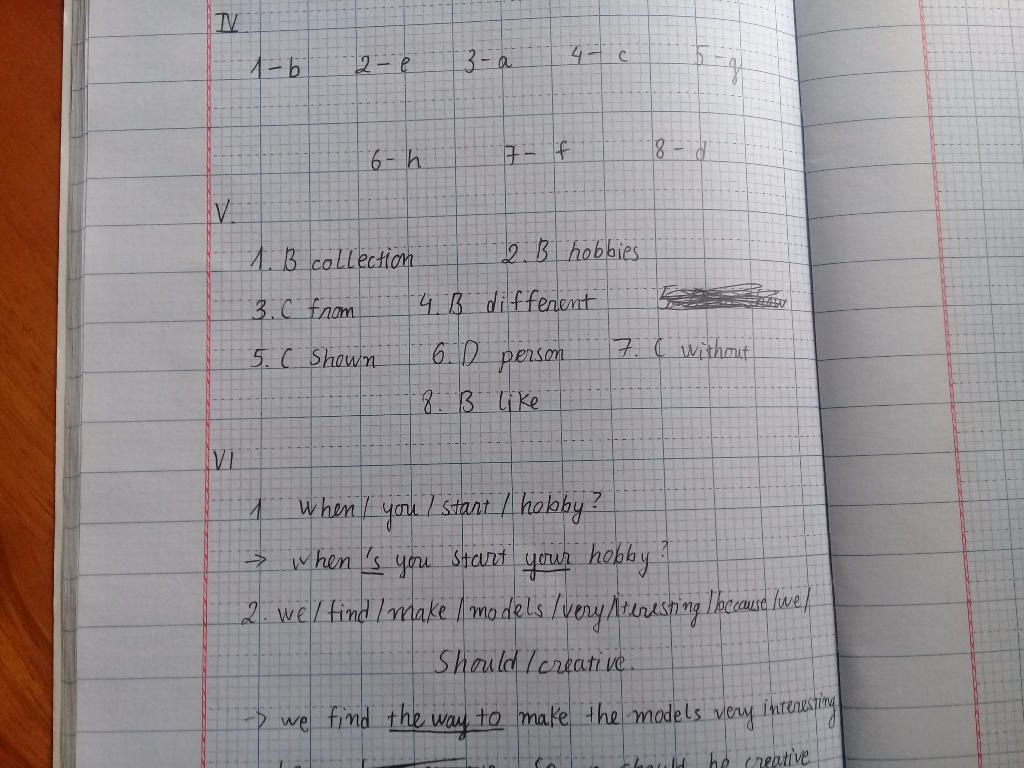 IV
1-b 2-e 3-a 4-c 5-g
6-h 7-f 8-d
V.
1. B collection 2. B hobbies
3. C from 4. B different
5. C Shown 6. D person 7. C without
8. B like
VI
1 When / you / start / hobby?
-> when 's you start your hobby?
2. we / find / make / models / very / teresting / because / we /
Should / creative.
-> we find the way to make the models very interesting
should be creative